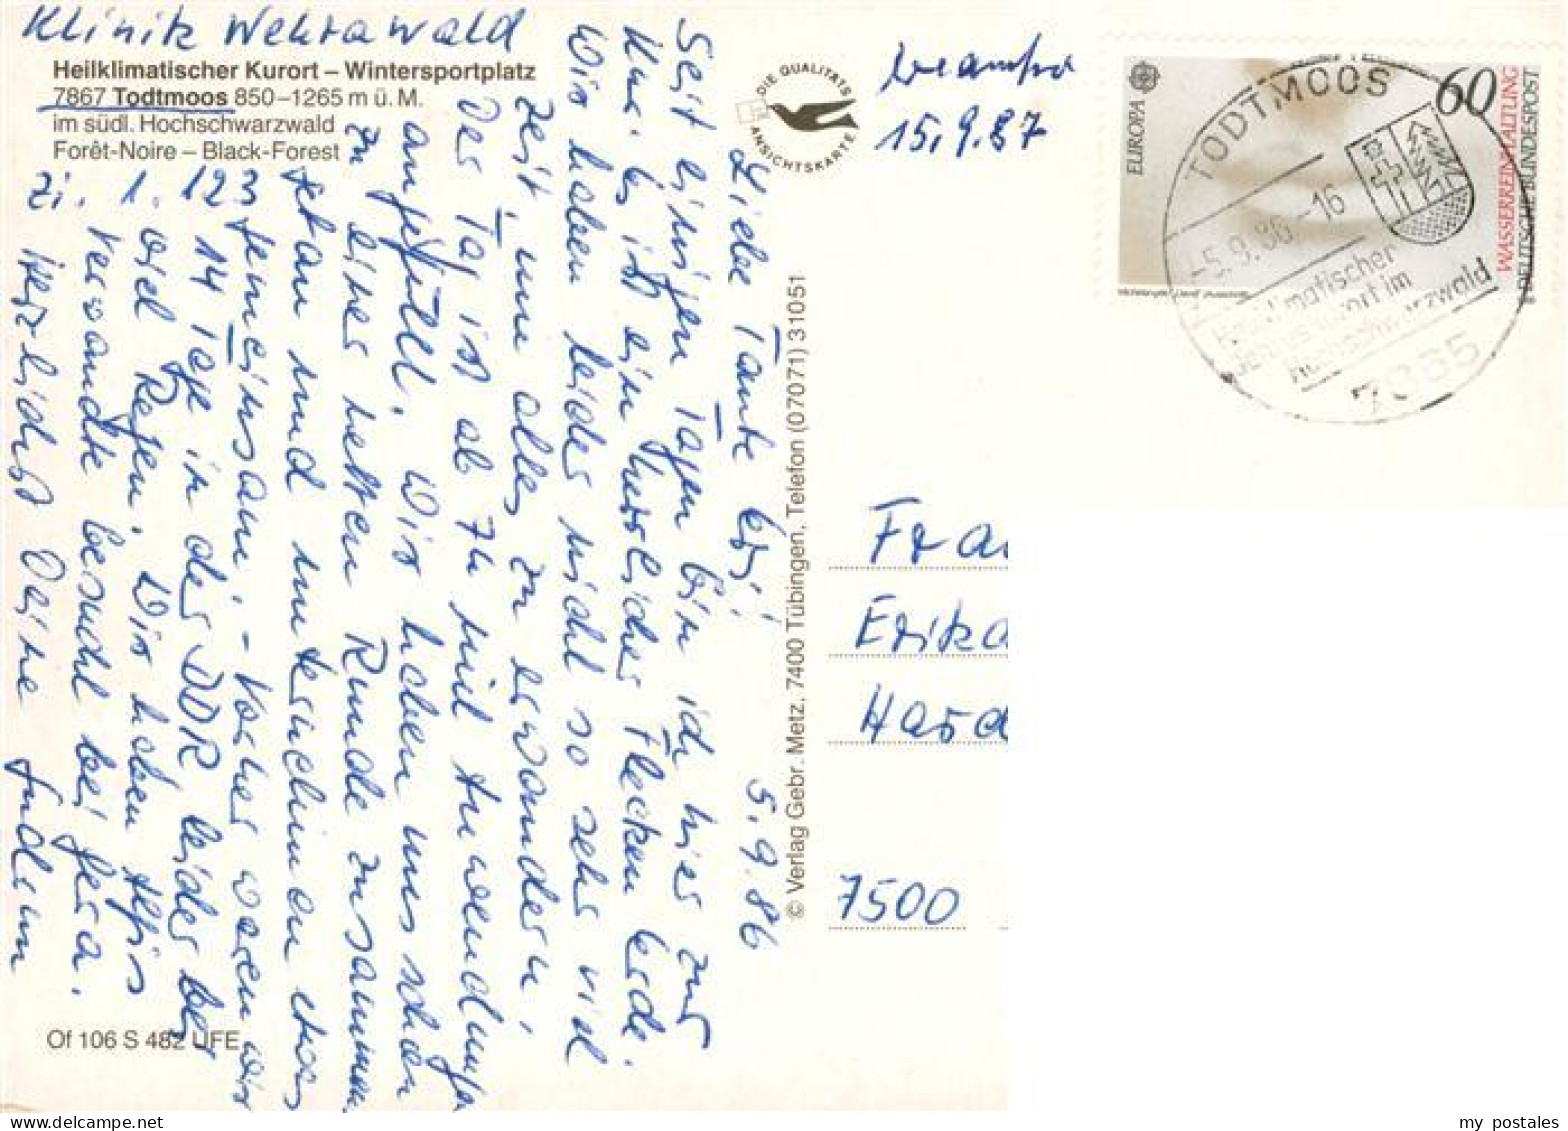 Klinik Wehrawald
Heilklimatischer Kurort – Wintersportplatz
7867 Todtmoos 850–1265 m ü. M.
im südl. Hochschwarzwald
Forêt-Noire – Black-Forest
Zi. 1. 123
5.9.86
Liebe Tante Eri!
Seit einigen Tagen bin ich hier zur
Kur. Es ist ein herrlicher Flecken Erde.
Wir haben leider nicht so sehr viel
Zeit, um alles zu erwandern.
Der Tag ist ab 7h mit Anwendungen
angefüllt. Wir haben uns schon
zu einer netten Runde zusammen
getan und unternehmen etwas
gemeinsam. – Vorher waren wir
14 Tage in der DDR leider bei
viel Regen. Wir haben
Verwandte besucht bei Jena.
Herzlichst Deine Gudrun
Of 106 S 482 UFE
© Verlag Gebr. Metz, 7400 Tübingen, Telefon (07071) 31051
DIE QUALITÄTS
ANSICHTSKARTE
15.9.87
EUROPA
60
WASSERREINHALTUNG
DEUTSCHE BUNDESPOST
TODTMOOS
-5.9.86-16
Heilklimatischer
Kurort im
Hochschwarzwald
7865
Frau
Erika
7500
my postales